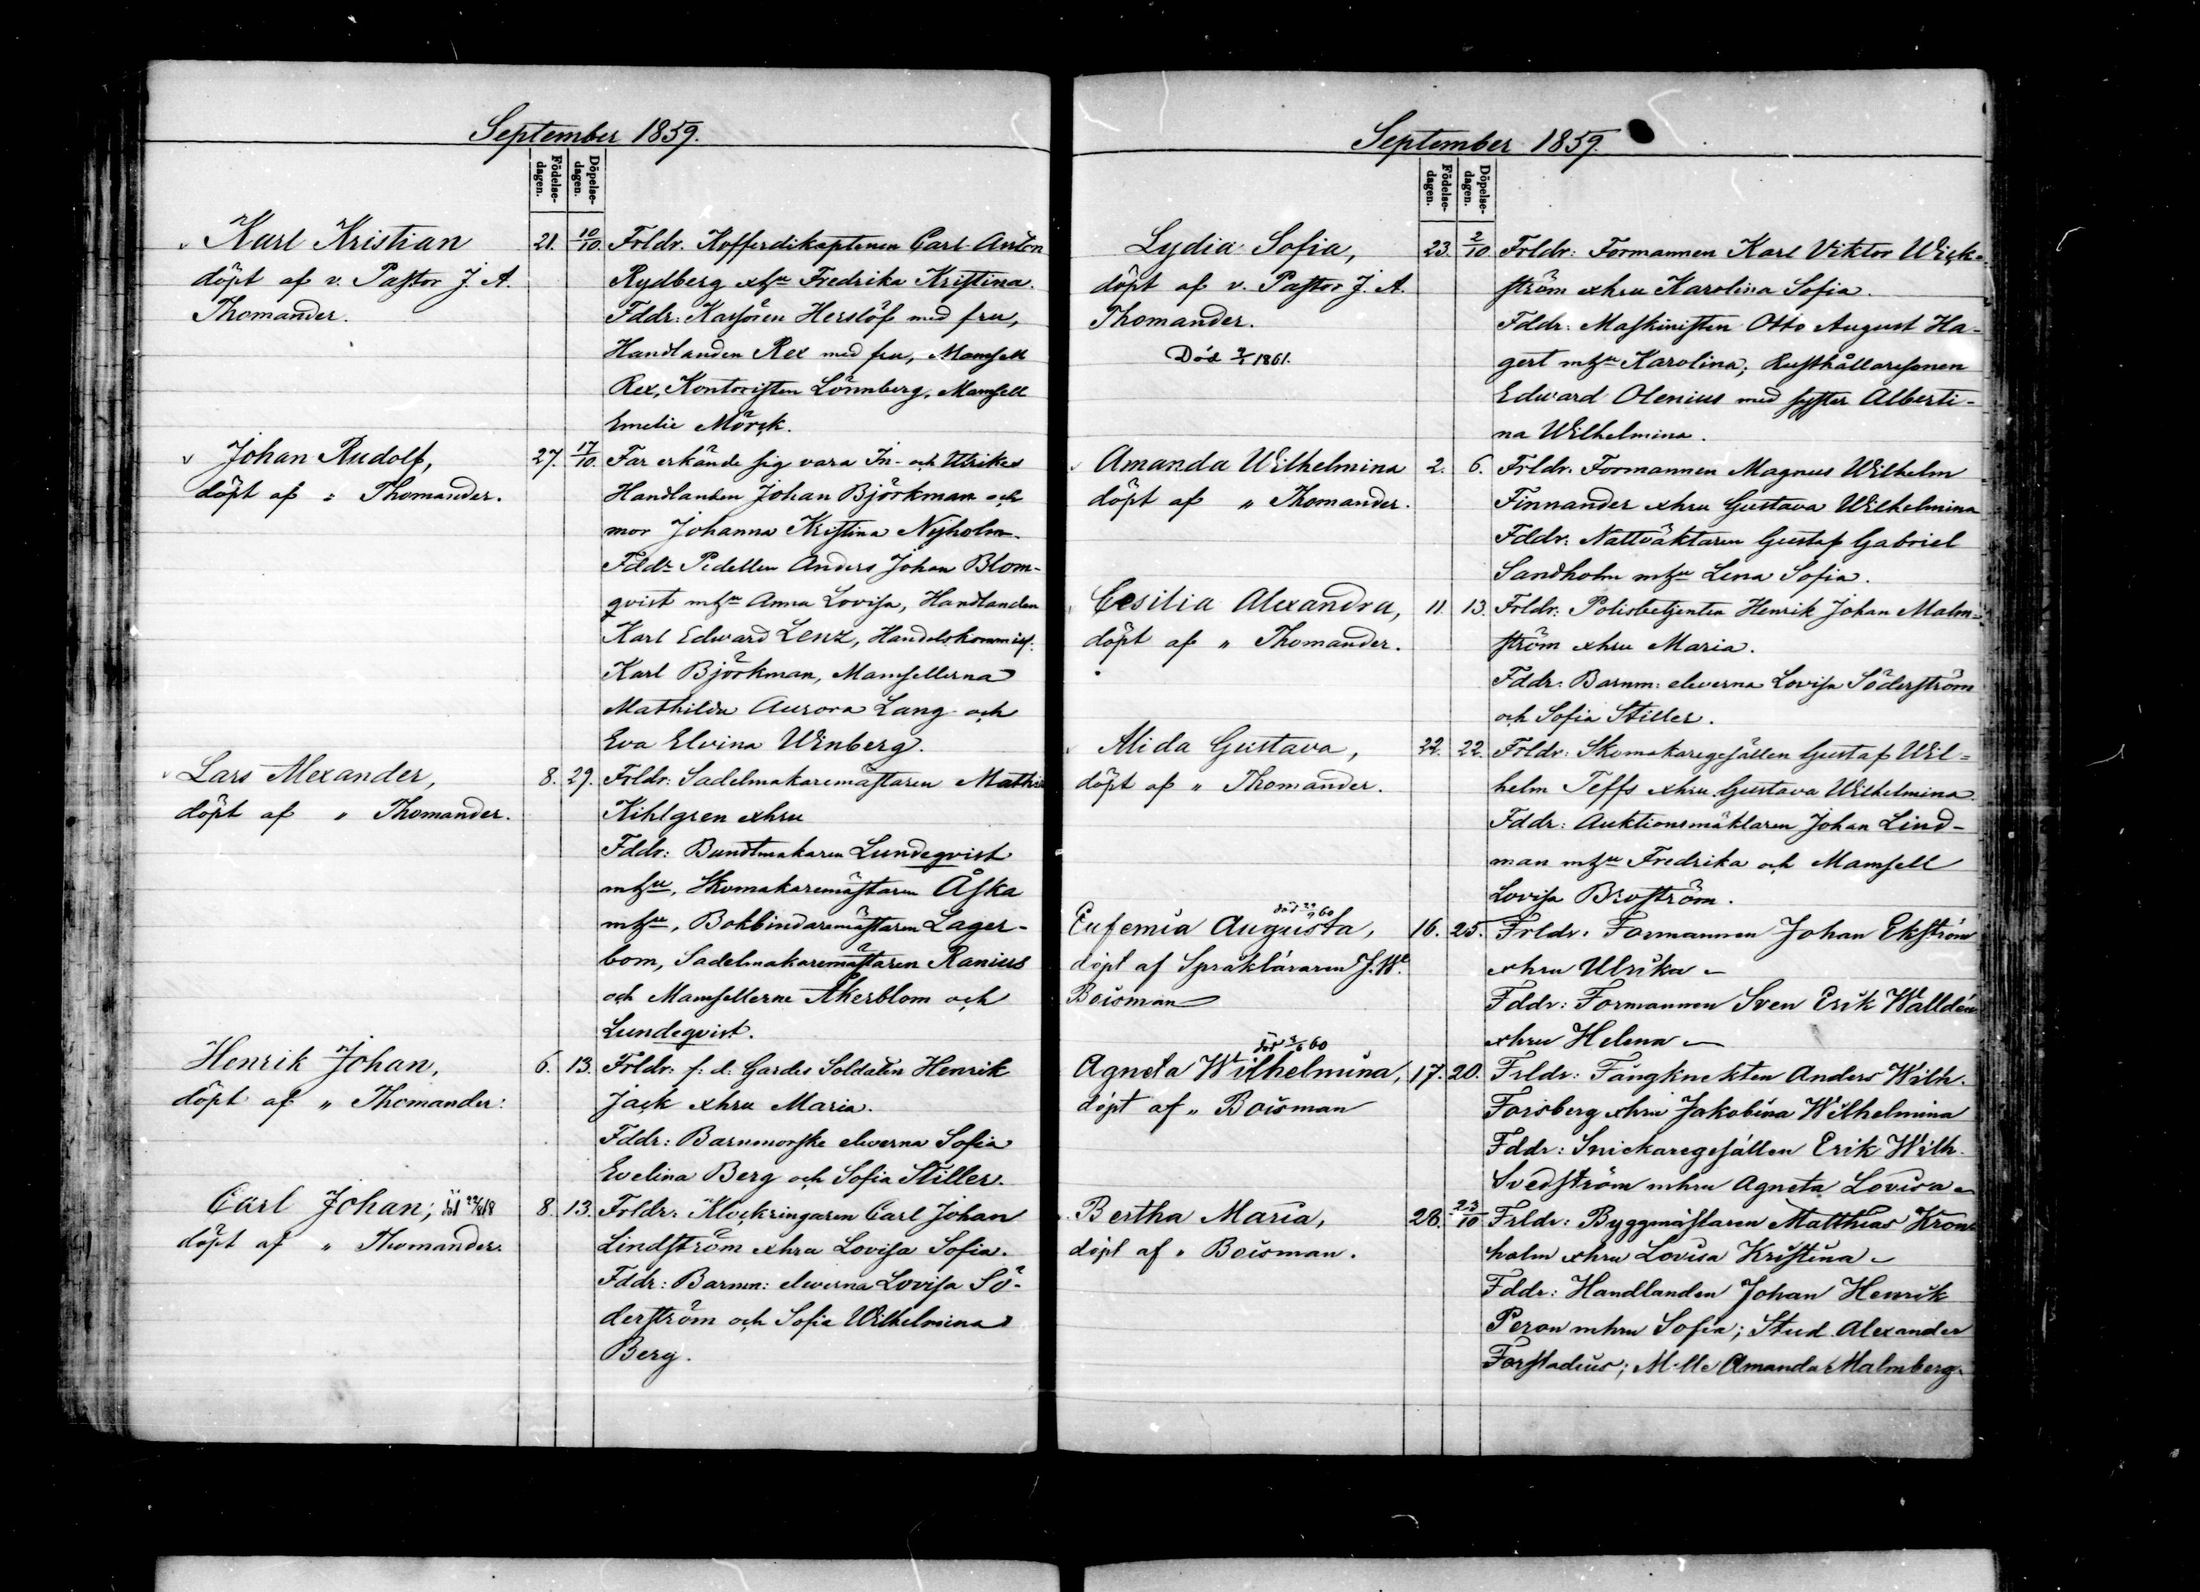 September 1859.
Födelse-dagen.
Döpelse-dagen.
Karl Kristian
döpt af v. Pastor J. A.
Thomander.
21. 10/10.
Frldr. Kofferdikaptenen Carl Anton
Rydberg xhu Fredrika Kristina.
Fddr: Herslöf med fru,
Handlanden Rex med fru, Mamsell
Rex, Kontoristen Lönnberg, Mamsell
Emelie Mörck.
Johan Rudolf,
döpt af " Thomander.
27. 17/10.
Far erkände sig vara In- och Utrikes
Handlanden Johan Björkman och
mor Johanna Kristina Nyholm.
Fddr Pedellen Anders Johan Blom-
qvist mhu Anna Lovisa, Handlanden
Karl Edward Lenz, Handelskommis:
Karl Björkman, Mamsellerna
Mathilda Aurora Lang och
Eva Elvina Winberg.
Lars Alexander,
döpt af " Thomander.
8. 29.
Frldr: Sadelmakaremästaren Mathias
Kihlgren xhru
Fddr: Buntmakaren Lundeqvist
mhu, Skomakaremästaren Åska
mhu, Bokbindaremästaren Lager-
bom, Sadelmakaremästaren Ranius
och Mamsellerne Åkerblom och
Lundeqvist.
Henrik Johan,
döpt af " Thomander.
6. 13.
Frldr: f: d: Gardes Soldaten Henrik
Jack xhru Maria.
Fddr: Barnmorske eleverna Sofia
Evelina Berg och Sofia Stiller.
Carl Johan, död
döpt af " Thomander.
8. 13.
Frldr: Klockringaren Carl Johan
Lindström xhru Lovisa Sofia.
Fddr: Barnm: eleverna Lovisa Sö-
derström och Sofia Wilhelmina
Berg.
September 1859.
Födelse-dagen.
Döpelse-dagen.
Lydia Sofia,
döpt af v. Pastor J. A.
Thomander.
Död 1861.
23. 2/10
Frldr: Formannen Karl Viktor Wick-
ström xhru Karolina Sofia.
Fddr: Maskinisten Otto August Ha-
gert mhu Karolina; Rusthållaresonen
Edward Olenius med syster Alberti-
na Wilhelmina.
Amanda Wilhelmina
döpt af " Thomander.
2. 6.
Frldr. Formannen Magnus Wilhelm
Finnander xhru Gustava Wilhelmina
Fddr: Nattväktaren Gustaf Gabriel
Sandholm mhu Lena Sofia.
Cesilia Alexandra,
döpt af " Thomander.
11. 13.
Frldr: Polisbetjenten Henrik Johan Malm-
ström xhru Maria.
Fddr. Barnm: eleverna Lovisa Söderström
och Sofia Stiller.
Alida Gustava,
döpt af " Thomander.
22. 22.
Frldr: Skomakaregesällen Gustaf Wil-
helm Teffs xhru Gustava Wilhelmina.
Fddr: Auktionsmäklaren Johan Lind-
man mhu Fredrika och Mamsell
Lovisa Broström.
död 60
Eufemia Augusta,
döpt af Språkläraren J. W.
Boisman
16. 25.
Frldr: Formannen Johan Ekström
xhru Ulrika
Fddr: Formannen Sven Erik Walldén
xhru Helena
död 3/6 60
Agneta Wilhelmina,
döpt af " Boisman
17. 20.
Frldr: Fångknekten Anders Wilh.
Forsberg xhru Jakobina Wilhelmina
Fddr: Snickaregesällen Erik Wilh.
Svedström mhru Agneta Lovisa
Bertha Maria,
döpt af " Boisman.
28. 23/10
Frldr: Byggmästaren Matthias Kron-
holm xhru Lovisa Kristina
Fddr: Handlanden Johan Henrik
Peron mhru Sofia; Stud. Alexander
Forstadius; M-lle Amanda Malmberg.